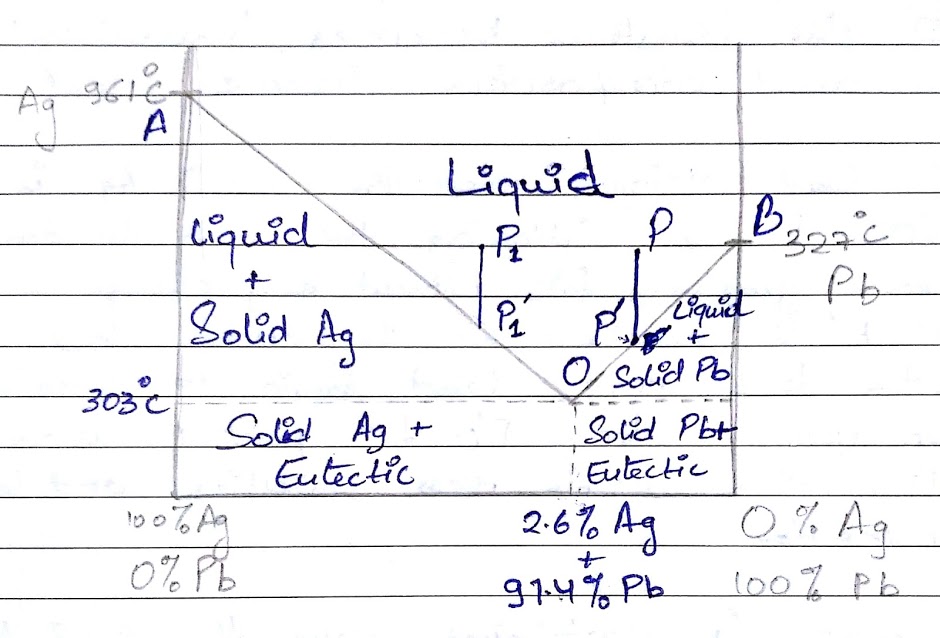 Ag 961°C
A
Liquid
Liquid
+
Solid Ag
P1
P1'
P
P'
B
327°C
Pb
Liquid
+
Solid Pb
O
303°C
Solid Ag +
Eutectic
Solid Pb+
Eutectic
100% Ag
0% Pb
2.6% Ag
+
97.4% Pb
0% Ag
100% Pb